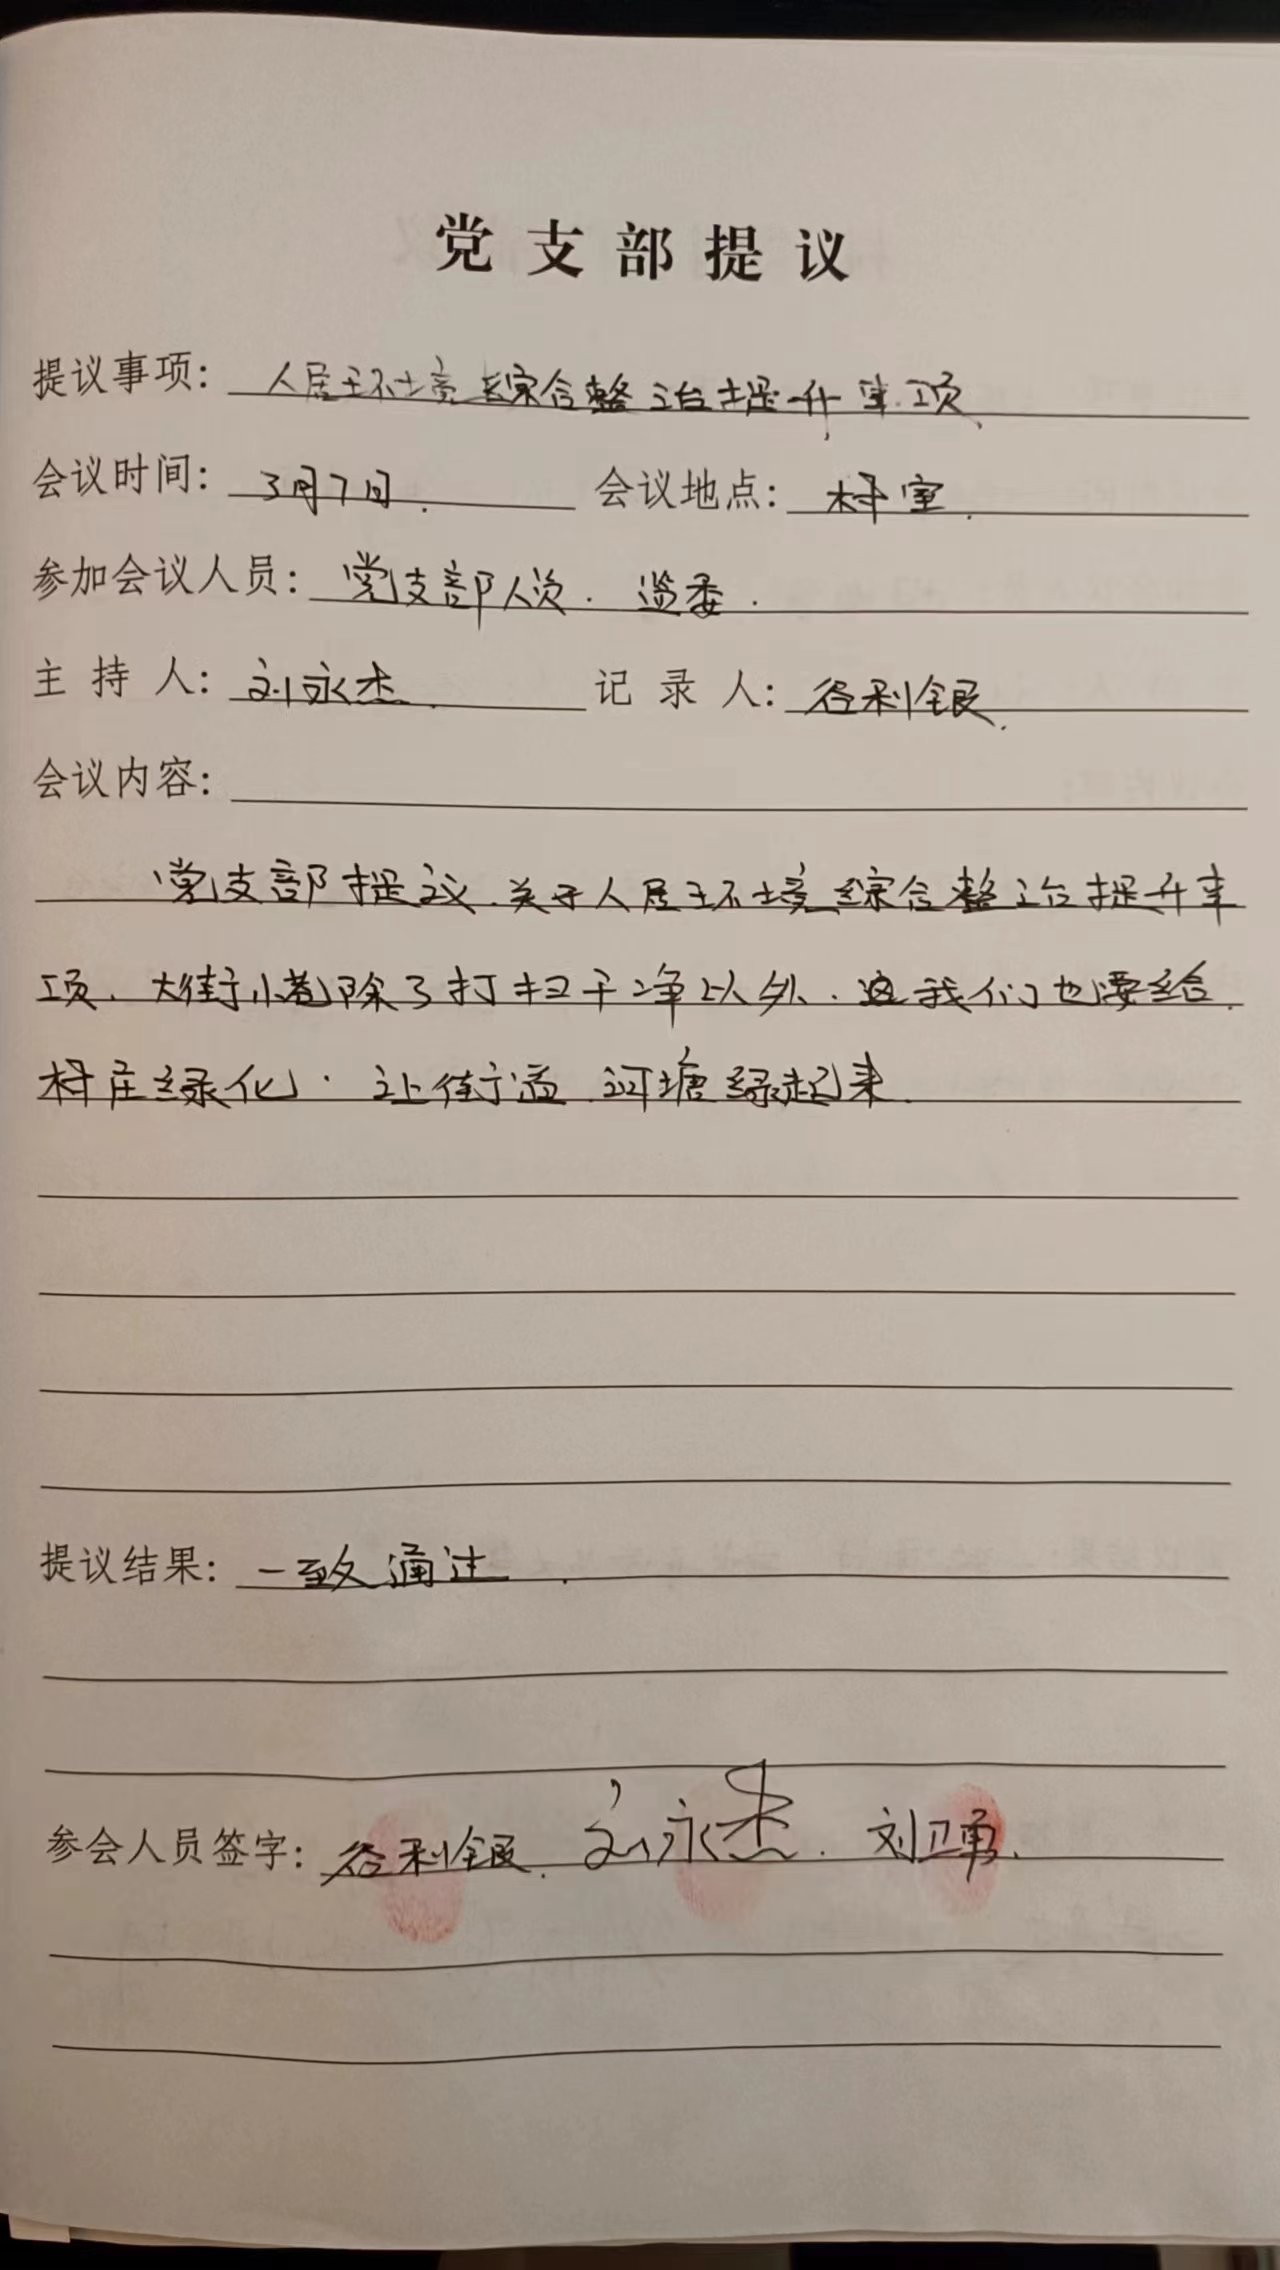 党支部提议
提议事项：人居环境综合整治提升事项
会议时间：3月7日. 会议地点：村室.
参加会议人员：党支部人员. 监委.
主持人：刘永杰. 记录人：谷利银.
会议内容：
党支部提议.关于人居环境综合整治提升事
项.大街小巷除了打扫干净以外.这我们也要给
村庄绿化.让街道.河塘绿起来.
提议结果：一致通过.
参会人员签字：谷利银.刘永杰.刘卫勇.